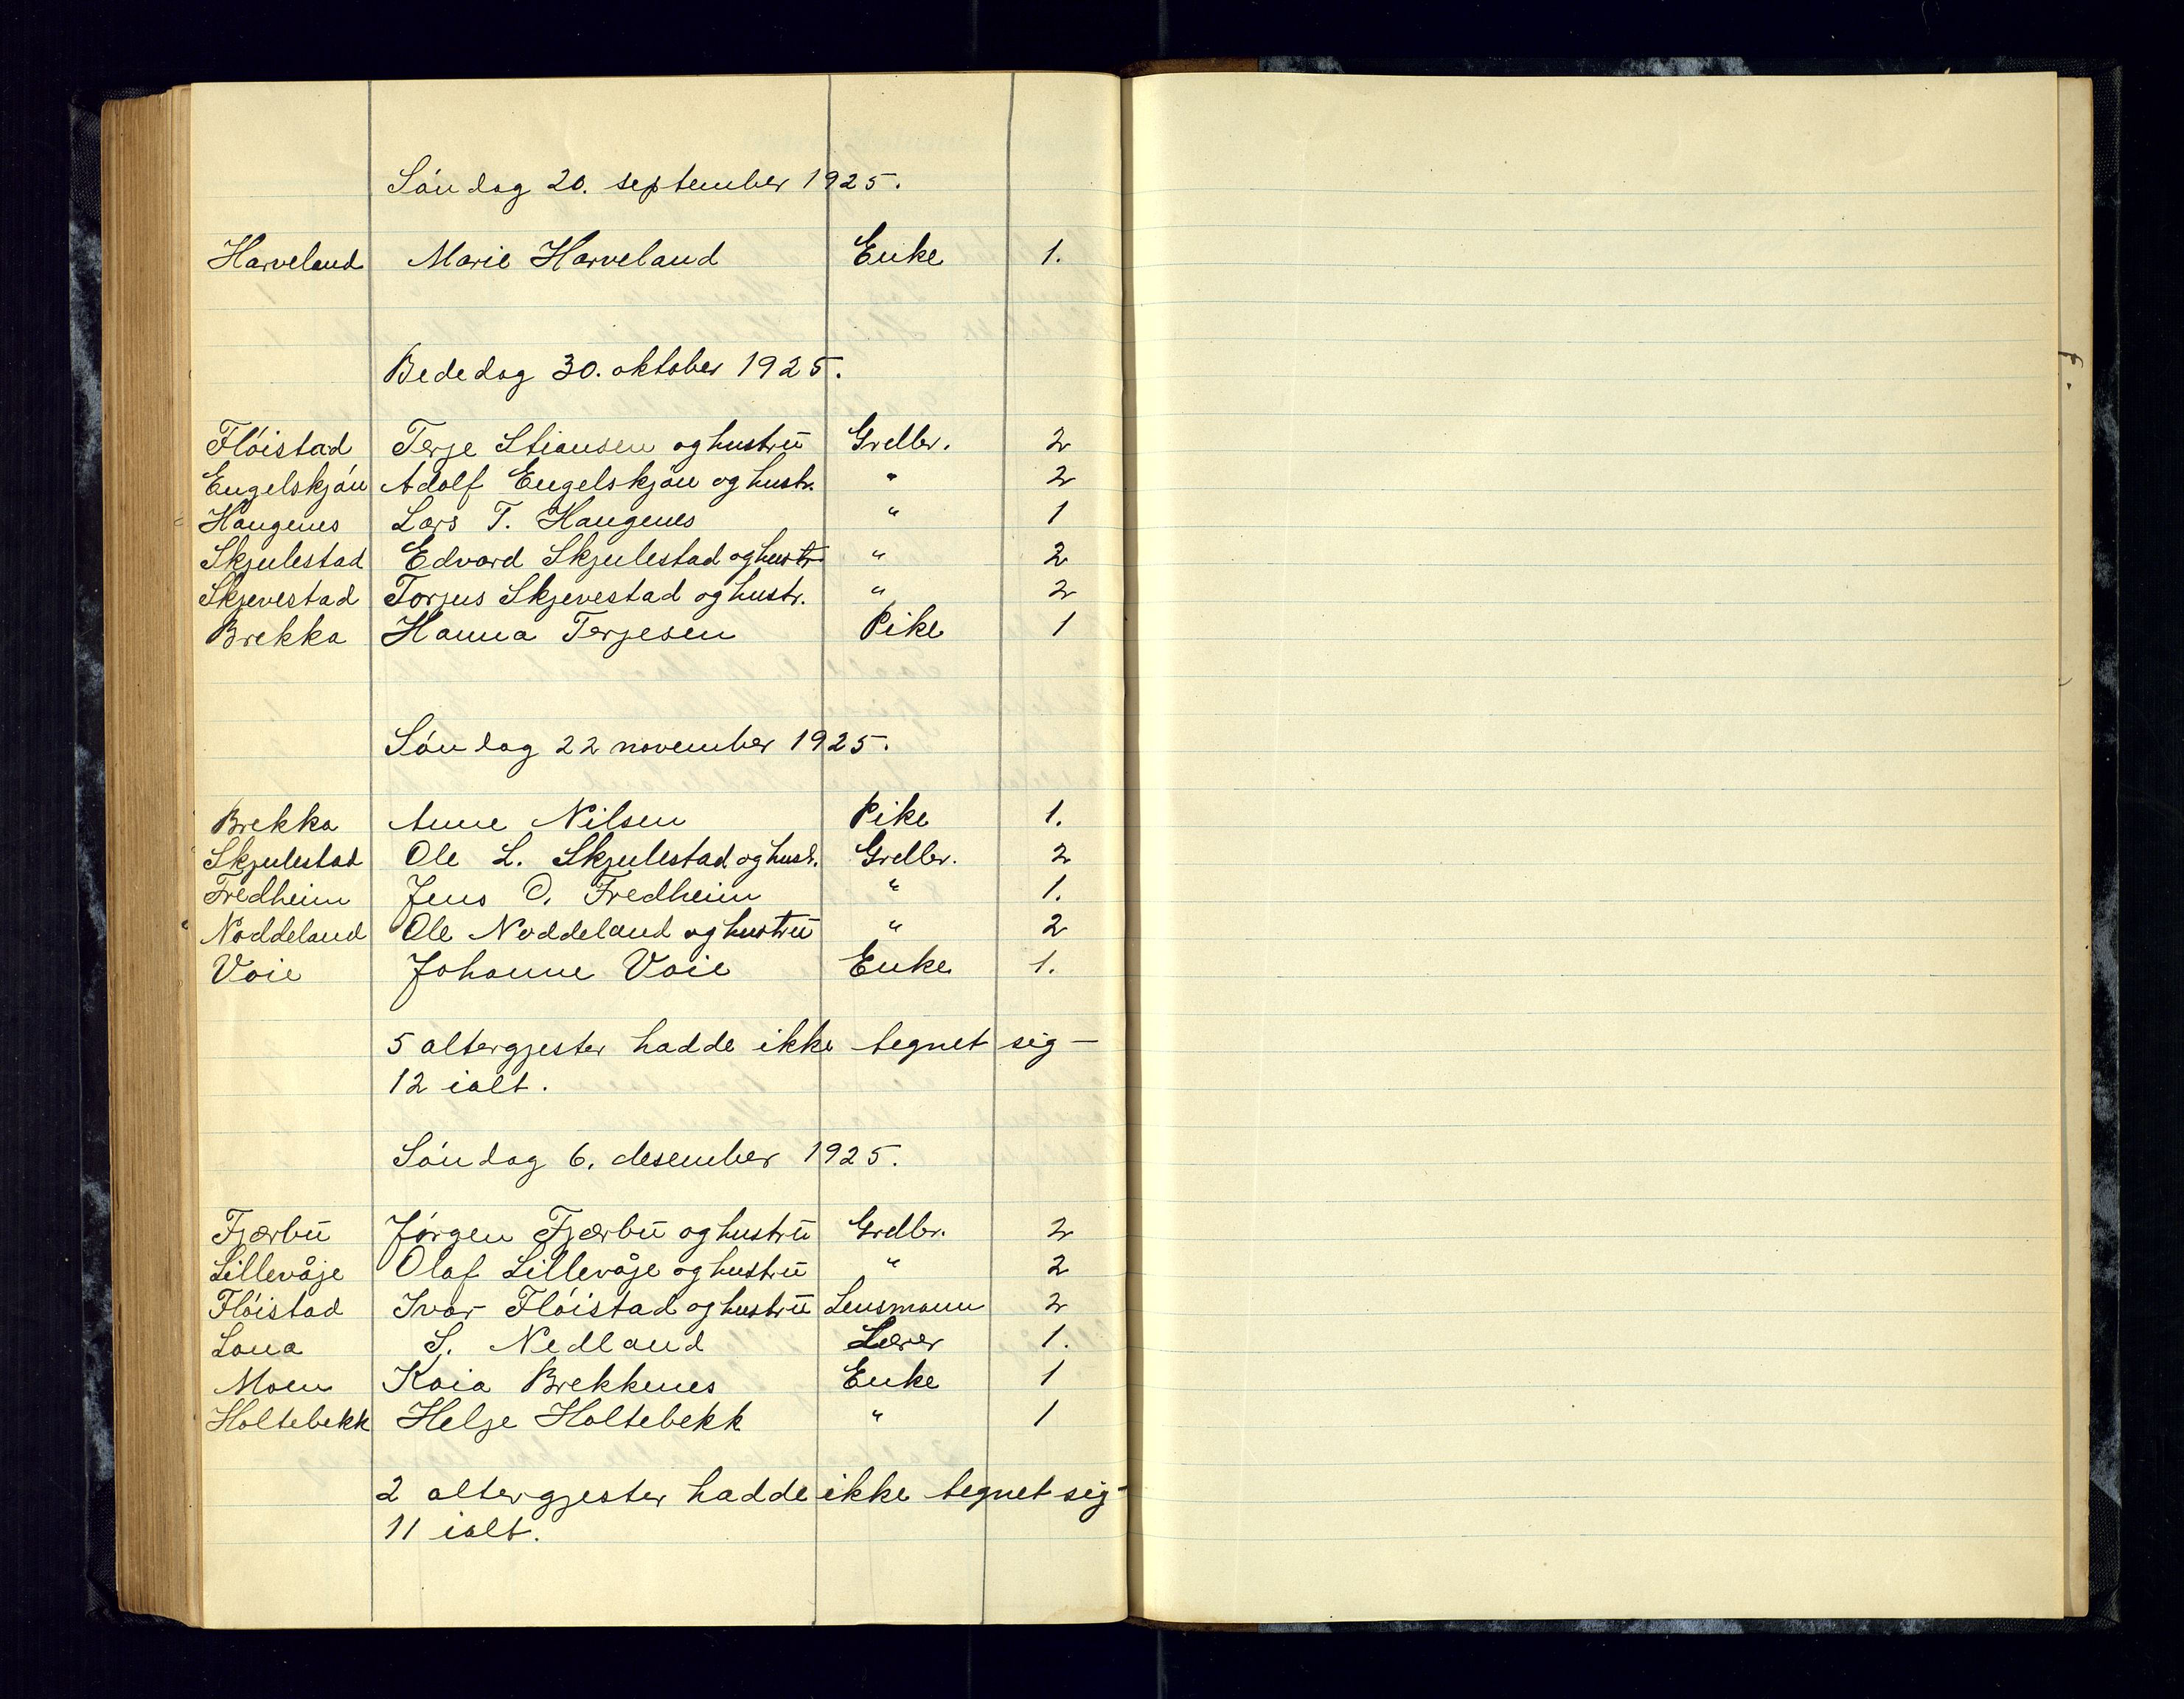 Søndag 20. september 1925.
Harveland Marie Harveland Enke 1.
Bededag 30. oktober 1925.
Fløistad Terje Stiansen og hustru Grdbr. 2
Engelskjøn Adolf Engelskjøn og hustr. " 2
Haugenes Lars T. Haugenes " 1
Skjulestad Edvard Skjulestad og hustr. " 2
Skjevestad Torjus Skjevestad og hustr. " 2
Brekka Hanna Terjesen Pike 1
Søndag 22 november 1925.
Brekka Anne Nilsen Pike 1.
Skjulestad Ole L. Skjulestad og hust. Grdbr. 2
Fredheim Jens O. Fredheim " 1.
Noddeland Ole Noddeland og hustru " 2
Voie Johanne Voie Enke 1.
5 altergjester hadde ikke tegnet sig –
12 ialt.
Søndag 6. desember 1925.
Fjærbu Jørgen Fjærbu og hustru Grdbr. 2
Lillevåje Olaf Lillevåje og hustru " 2
Fløistad Ivar Fløistad og hustru Lensmann 2
Lona S. Nedland Lærer 1.
Moen Kaia Brekkenes Enke 1
Holtebekk Helje Holtebekk " 1
2 altergjester hadde ikke tegnet sig –
11 ialt.